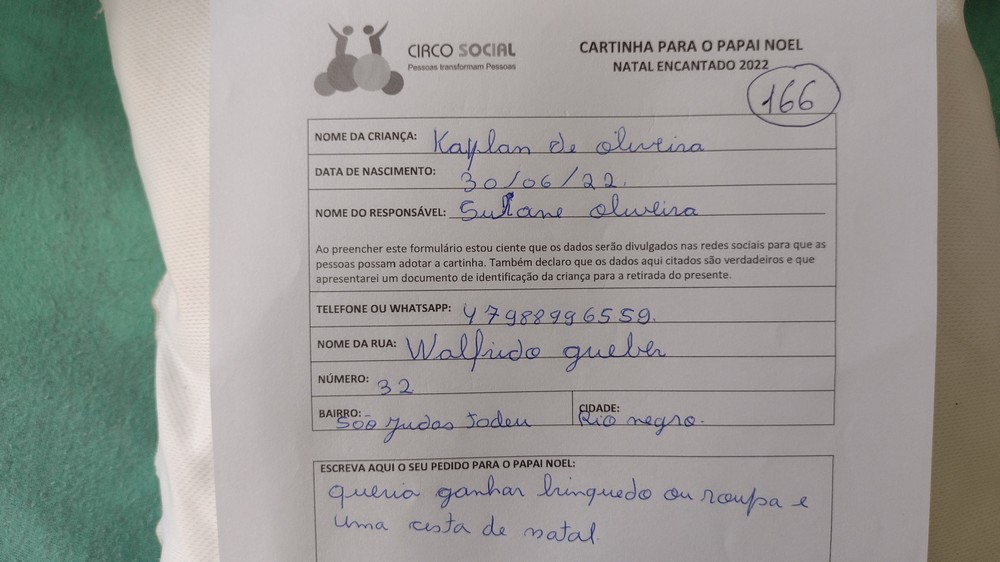 CIRCO SOCIAL
Pessoas transformam Pessoas
CARTINHA PARA O PAPAI NOEL
NATAL ENCANTADO 2022
166
NOME DA CRIANÇA: Kaylan de oliveira
DATA DE NASCIMENTO: 30/06/22.
NOME DO RESPONSÁVEL: oliveira
Ao preencher este formulário estou ciente que os dados serão divulgados nas redes sociais para que as
pessoas possam adotar a cartinha. Também declaro que os dados aqui citados são verdadeiros e que
apresentarei um documento de identificação da criança para a retirada do presente.
TELEFONE OU WHATSAPP: 47988996559.
NOME DA RUA: Walfrido gueber
NÚMERO: 32
BAIRRO: São Judas Tadeu CIDADE: Rio negro.
ESCREVA AQUI O SEU PEDIDO PARA O PAPAI NOEL:
queria ganhar brinquedo ou roupa e
uma cesta de natal.